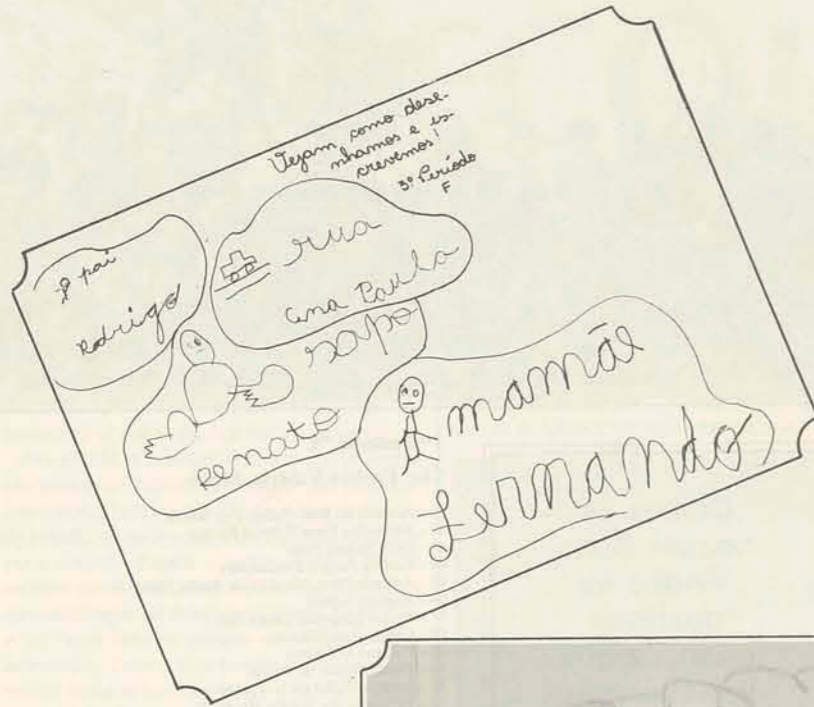 Vejam como dese-
nhamos e es-
crevemos!
3º Período
F
pai
Rodrigo
rua
Ana Paula
sapo
renato
mamãe
Fernando